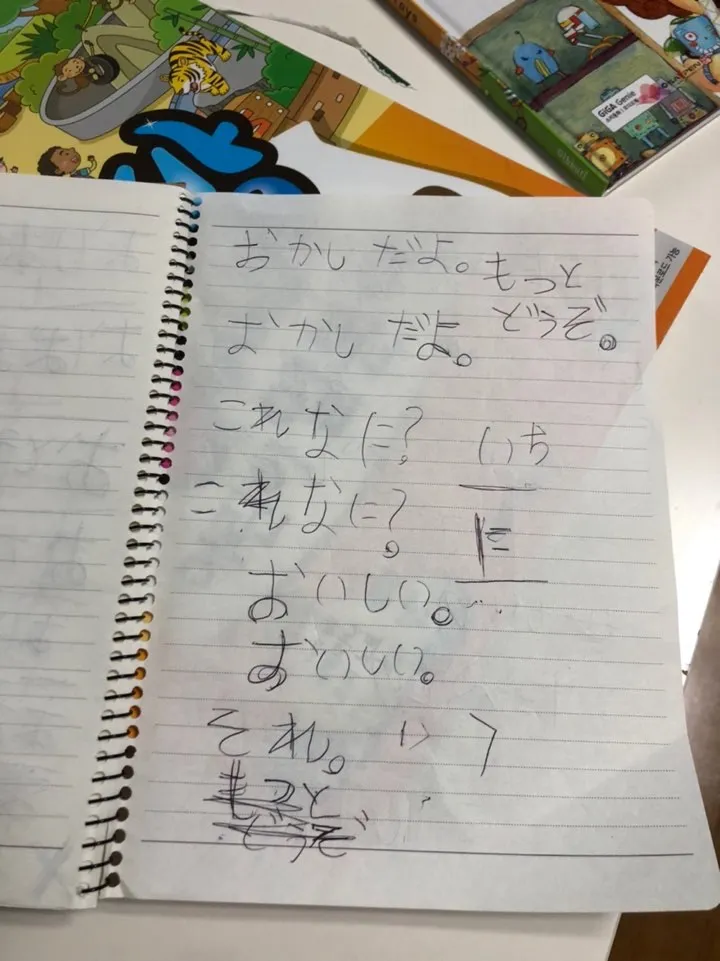 GiGA Genie
おかしだよ。
もっと
どうぞ。
おかしだよ。
これなに?
いち
これなに?
に
おいしい。
おいしい。
それ。
もっと
どうぞ